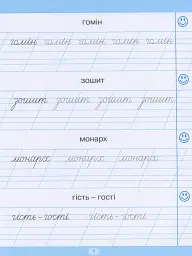 гомін
гомін гомін гомін гомін гомін
зошит
зошит зошит зошит зошит
монарх
монарх монарх монарх
гість – гості
гість – гості гість – гості